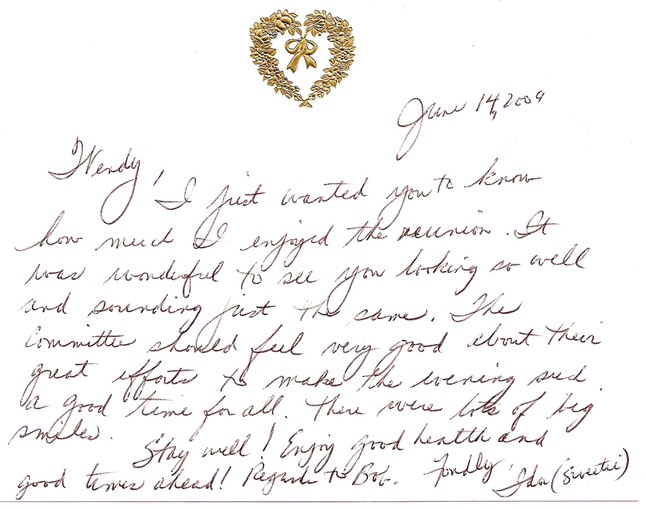 June 14, 2009
Wendy,
I just wanted you to know
how much I enjoyed the reunion. It
was wonderful to see you looking so well
and sounding just the same. The
Committee should feel very good about their
great efforts to make the evening such
a good time for all. There were lots of big
smiles.
Stay well! Enjoy good health and
good times ahead! Regards to Bob. Fondly,
Ida (Sweetie)